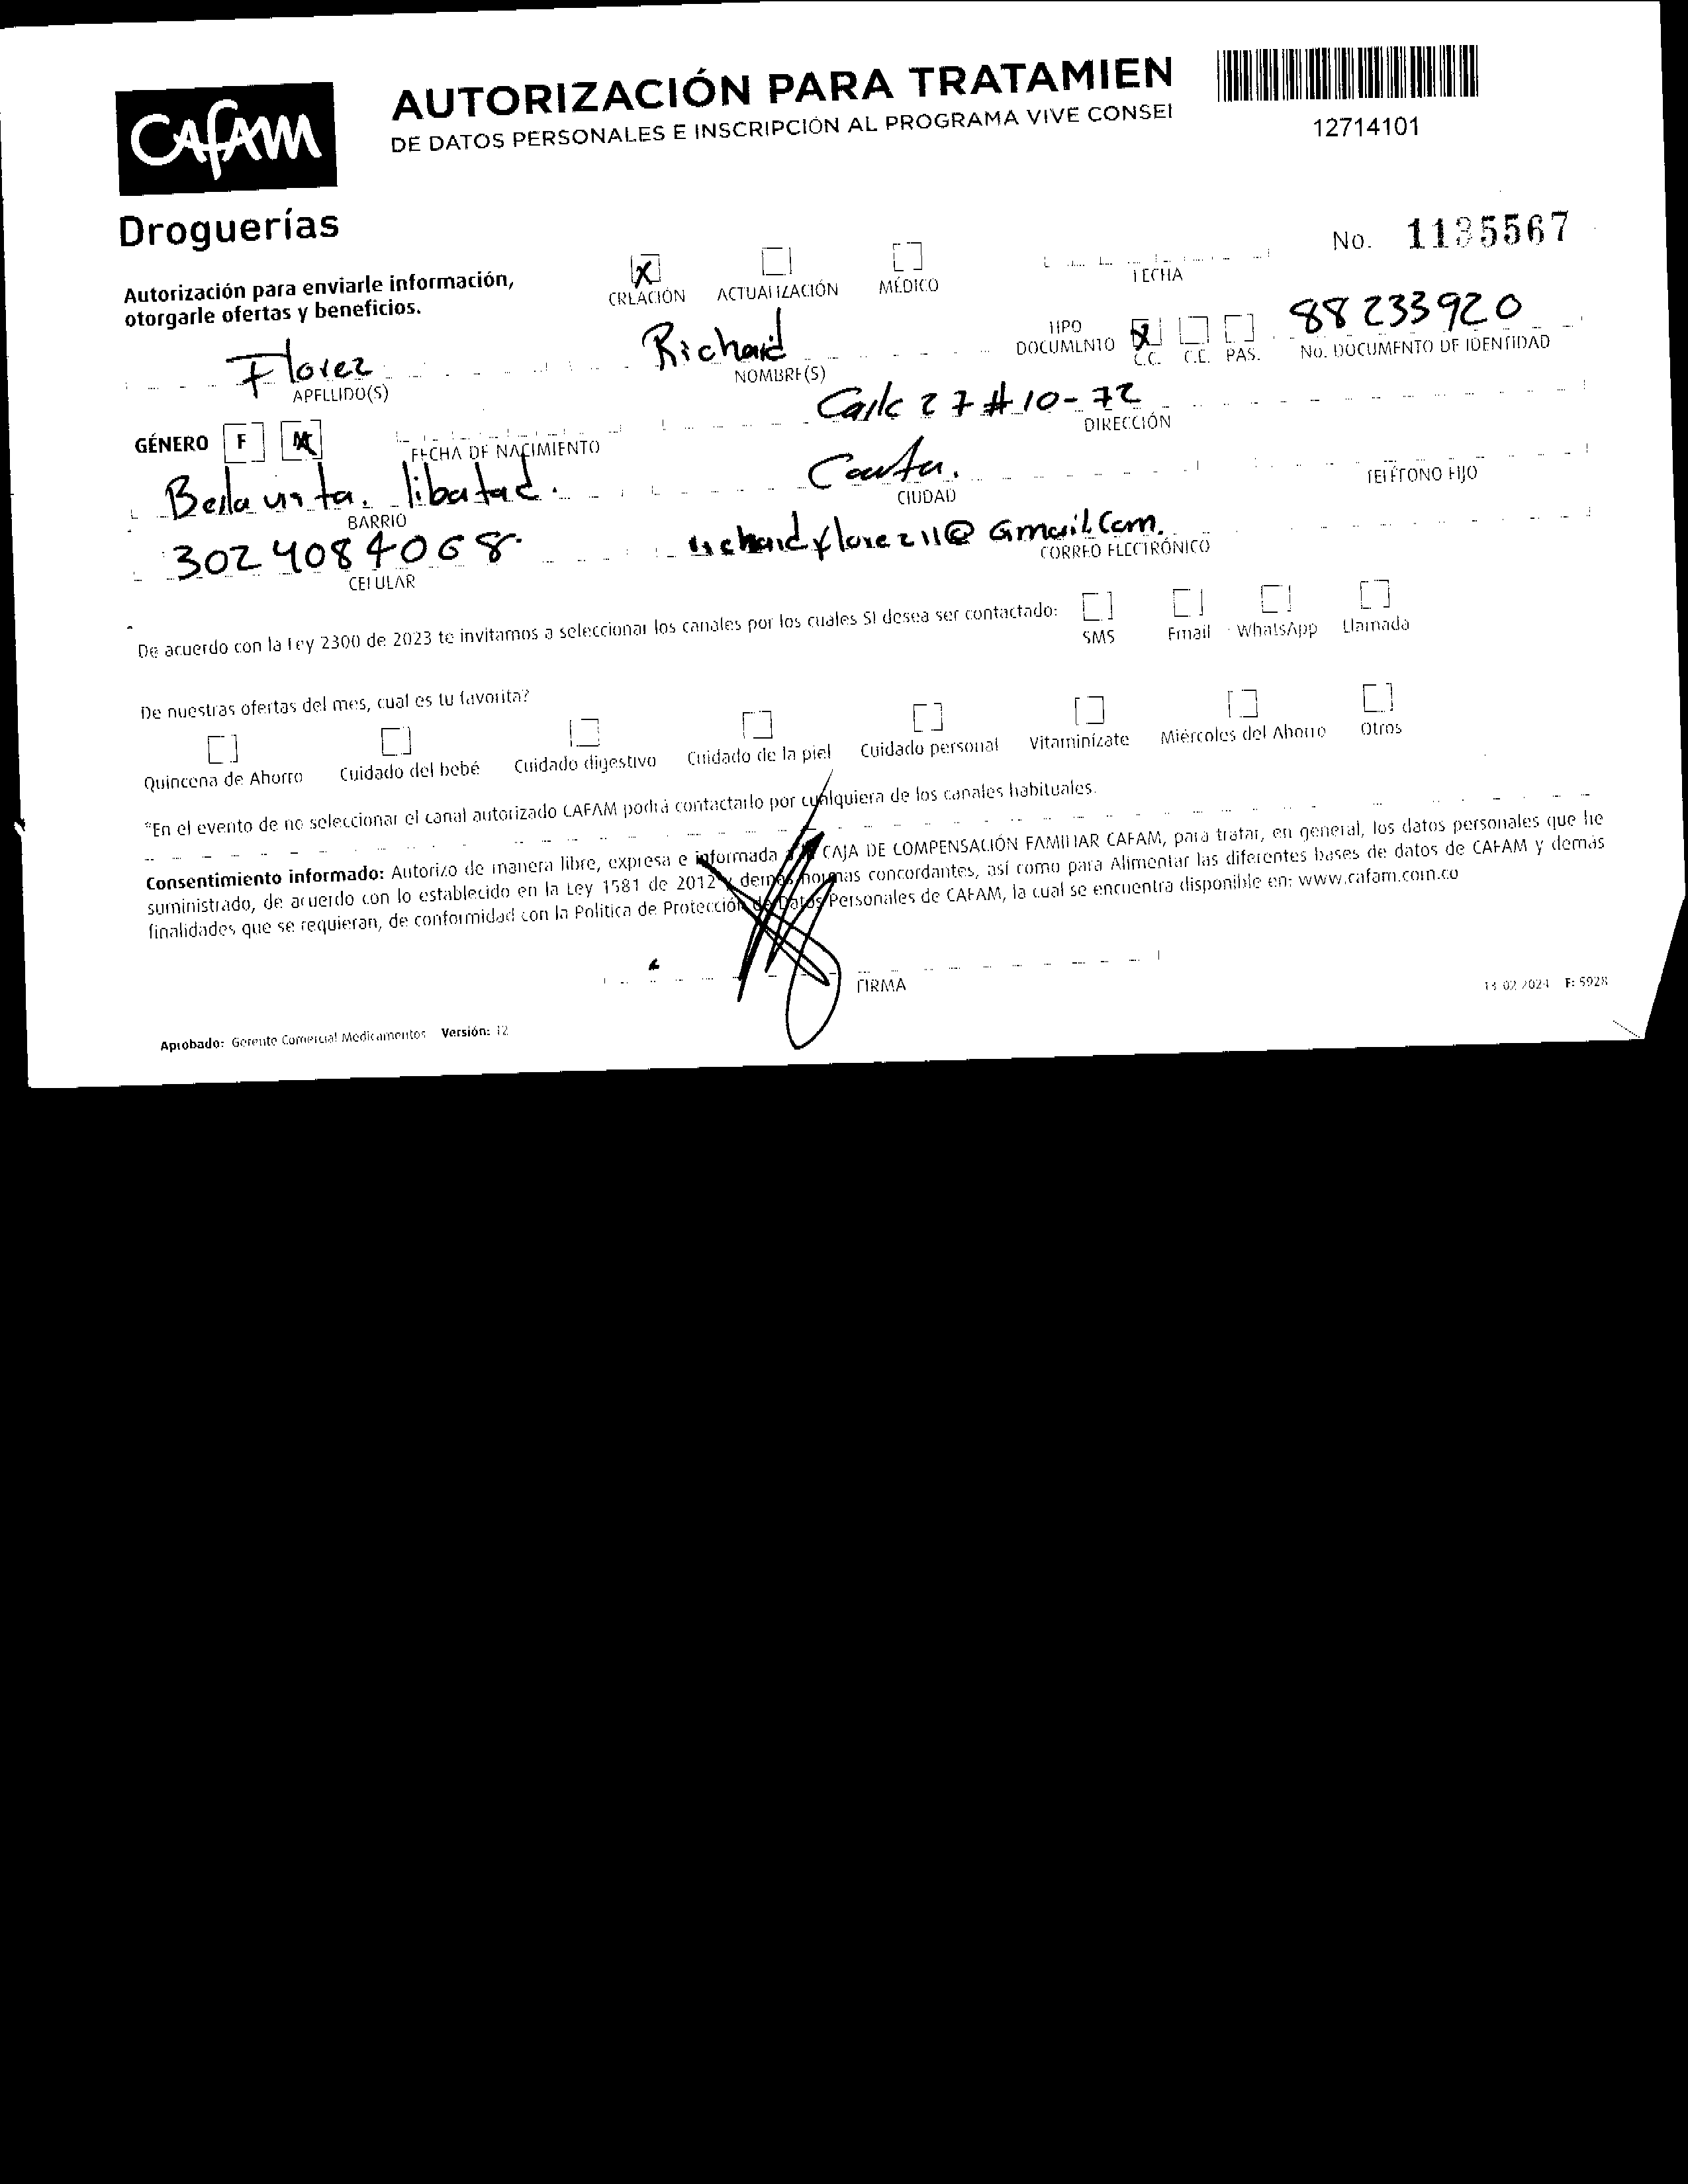 CAFAM
AUTORIZACIÓN PARA TRATAMIEN
DE DATOS PERSONALES E INSCRIPCIÓN AL PROGRAMA VIVE CONSEI
12714101
Droguerías
No. 1135567
Autorización para enviarle información,
otorgarle ofertas y beneficios.
X
CREACIÓN ACTUALIZACIÓN MÉDICO FECHA
Florez Richard TIPO DOCUMENTO X C.C. C.E. PAS. 88233920
APELLIDO(S) NOMBRE(S) No. DOCUMENTO DE IDENTIDAD
GÉNERO F M FECHA DE NACIMIENTO Calle 27 # 10-72
DIRECCIÓN
Bella vista. libertad.
BARRIO CIUDAD TELÉFONO FIJO
3024084068. richardflorez11@Gmail.Com.
CELULAR CORREO ELECTRÓNICO
De acuerdo con la Ley 2300 de 2023 te invitamos a seleccionar los canales por los cuales SI desea ser contactado: SMS Email WhatsApp Llamada
De nuestras ofertas del mes, cual es tu favorita?
Quincena de Ahorro Cuidado del bebé Cuidado digestivo Cuidado de la piel Cuidado personal Vitaminízate Miércoles del Ahorro Otros
*En el evento de no seleccionar el canal autorizado CAFAM podrá contactarlo por cualquiera de los canales habituales.
Consentimiento informado: Autorizo de manera libre, expresa e informada a la CAJA DE COMPENSACIÓN FAMILIAR CAFAM, para tratar, en general, los datos personales que he
suministrado, de acuerdo con lo establecido en la Ley 1581 de 2012 y demás normas concordantes, así como para Alimentar las diferentes bases de datos de CAFAM y demás
finalidades que se requieran, de conformidad con la Politica de Protección de Datos Personales de CAFAM, la cual se encuentra disponible en: www.cafam.com.co
FIRMA
13-02-2024 F: 5928
Aprobado: Gerente Comercial Medicamentos Versión: 12